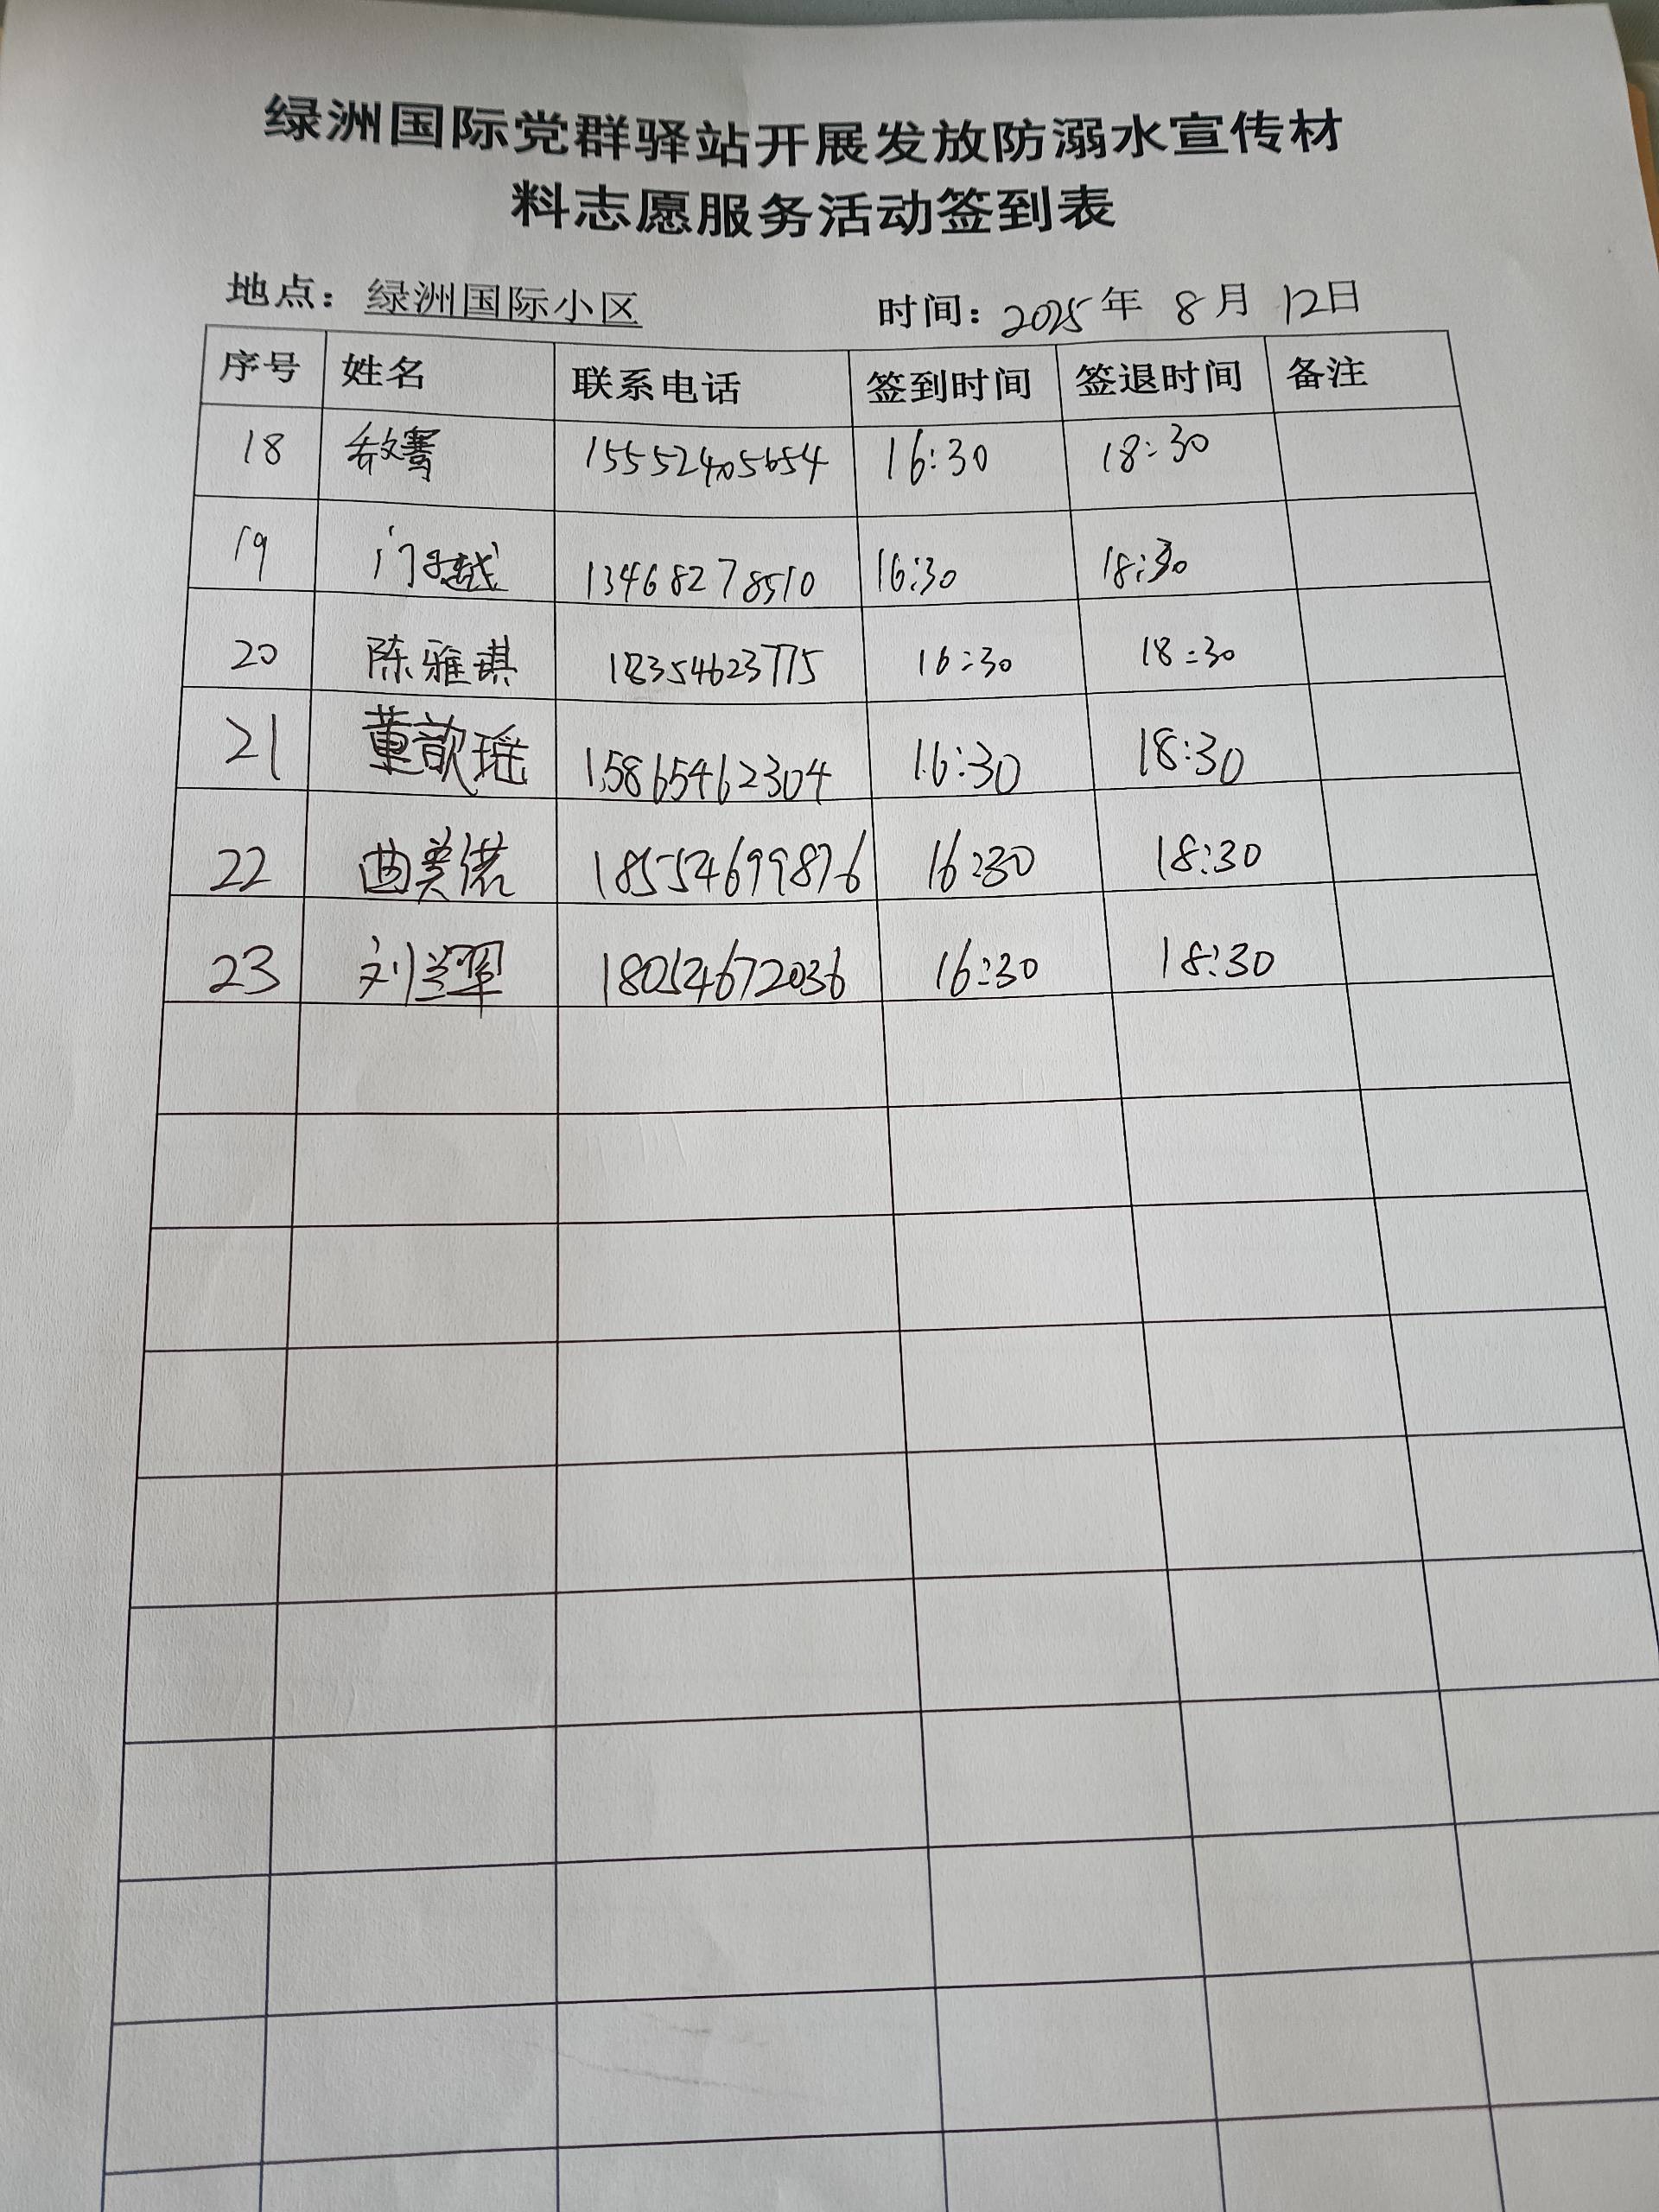 绿洲国际党群驿站开展发放防溺水宣传材
料志愿服务活动签到表
地点：绿洲国际小区 时间：2025年 8月 12日
序号 姓名 联系电话 签到时间 签退时间 备注
18 15552405654 16:30 18:30
19 门子越 13468278510 16:30 18:30
20 陈雅琪 18354623775 16:30 18:30
21 董歆瑶 15865462304 16:30 18:30
22 曲美偌 18554699876 16:30 18:30
23 刘兰翠 18054672036 16:30 18:30